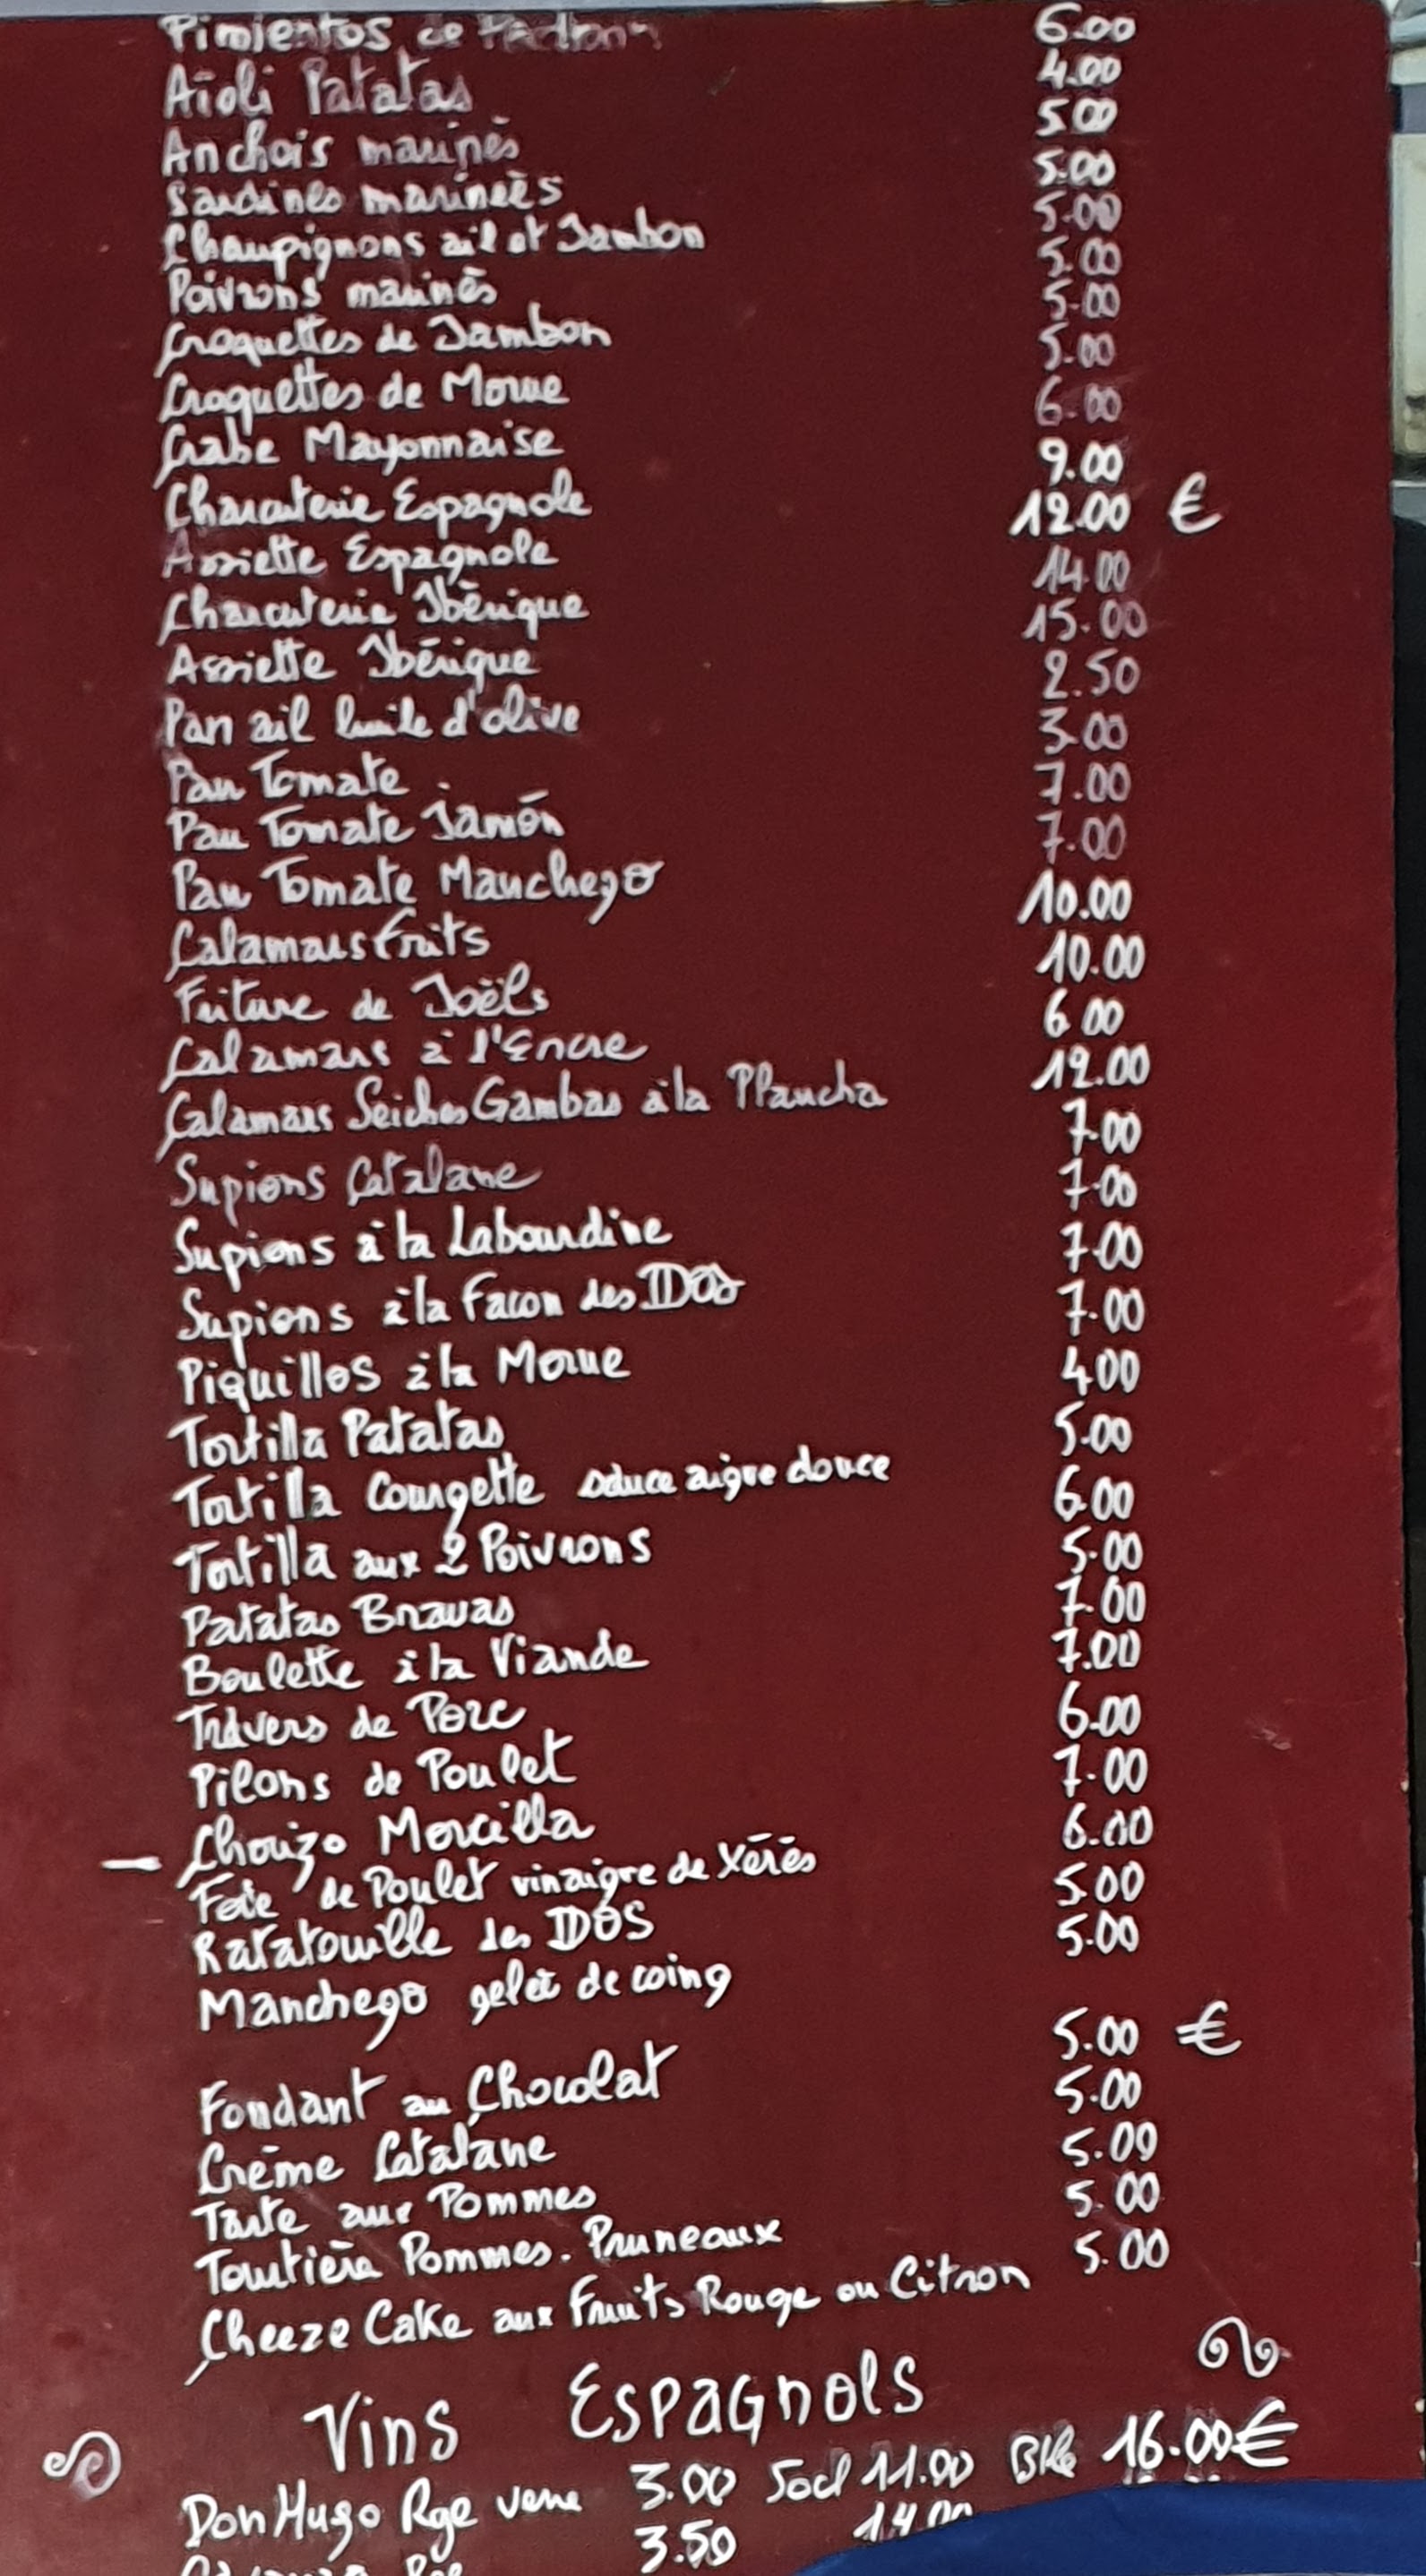 Pimientos de Padron 6.00
Aïoli Patatas 4.00
Anchois marinés 5.00
Sardines marineés 5.00
Champignons ail et Jambon 5.00
Poivrons marinés 5.00
Croquettes de Jambon 5.00
Croquettes de Morue 5.00
Crabe Mayonnaise 6.00
Charcuterie Espagnole 9.00
Assiette Espagnole 12.00 €
Charcuterie Ibérique 14.00
Assiette Ibérique 15.00
Pan ail huile d'olive 2.50
Pan Tomate 3.00
Pan Tomate Jamón 7.00
Pan Tomate Manchego 7.00
Calamars frits 10.00
Friture de Joëls 10.00
Calamars à l'Encre 6.00
Calamars Seiches Gambas à la Plancha 12.00
Supions Catalane 7.00
Supions à la Labourdine 7.00
Supions à la Facon des IDOS 7.00
Piquillos à la Morue 7.00
Tortilla Patatas 4.00
Tortilla Courgette sauce aigre douce 5.00
Tortilla aux 2 Poivrons 6.00
Patatas Bravas 5.00
Boulette à la Viande 7.00
Travers de Porc 7.00
Pilons de Poulet 6.00
– Chorizo Morcilla 7.00
Foie de Poulet vinaigre de Xérès 6.00
Ratatouille des IDOS 5.00
Manchego geleé de coing 5.00
Fondant au Chocolat 5.00 €
Crème Catalane 5.00
Tarte aux Pommes 5.00
Tourtière Pommes. Pruneaux 5.00
Cheeze Cake aux Fruits Rouge ou Citron 5.00
Vins Espagnols
Don Hugo Rge verre 3.00 50cl 11.00 Blle 16.00€
3.50 14.00